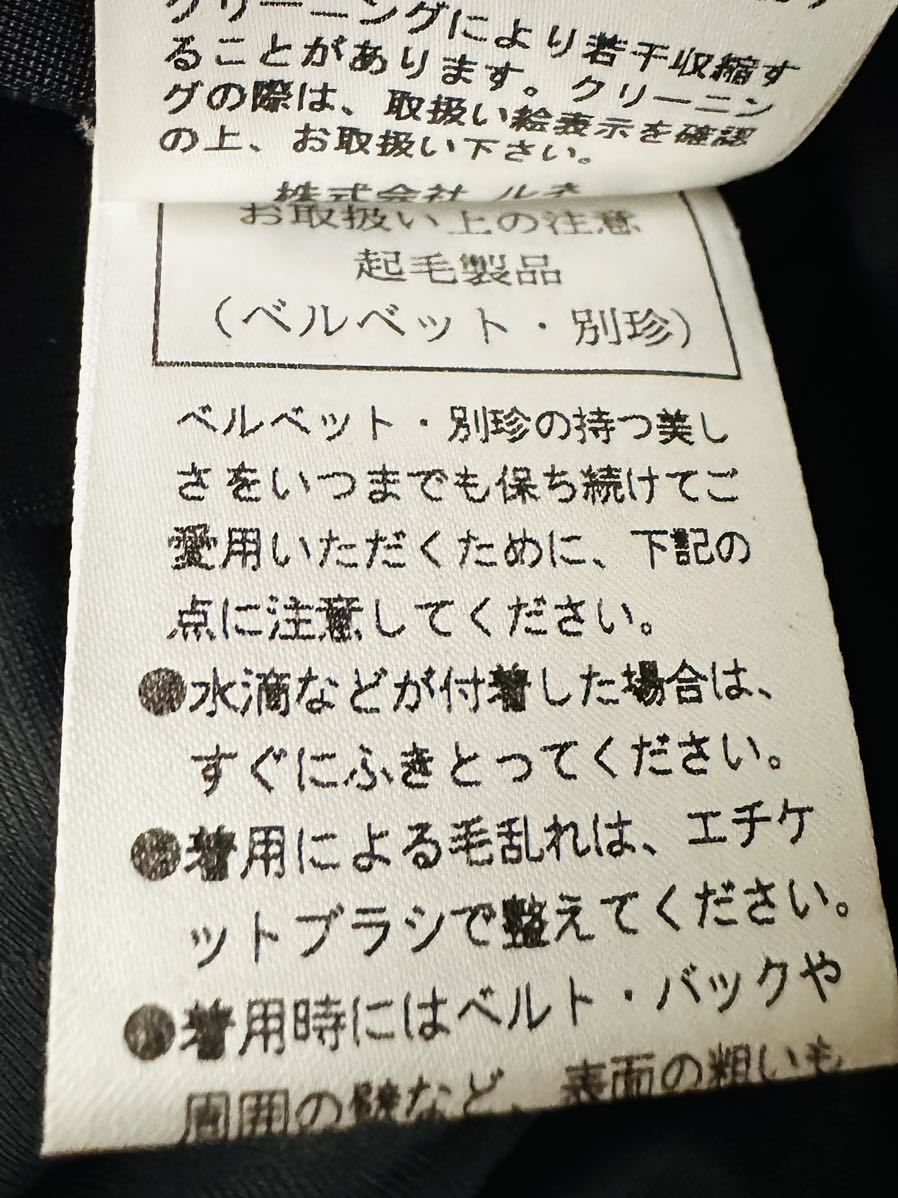 クリーニングにより若干収縮す
ることがあります。クリーニン
グの際は、取扱い絵表示を確認
の上、お取扱い下さい。
株式会社 ルネ
お取扱い上の注意
起毛製品
(ベルベット・別珍)
ベルベット・別珍の持つ美し
さをいつまでも保ち続けてご
愛用いただくために、下記の
点に注意してください。
●水滴などが付着した場合は、
すぐにふきとってください。
●着用による毛乱れは、エチケ
ットブラシで整えてください。
●着用時にはベルト・バックや
周囲の壁など、表面の粗いも